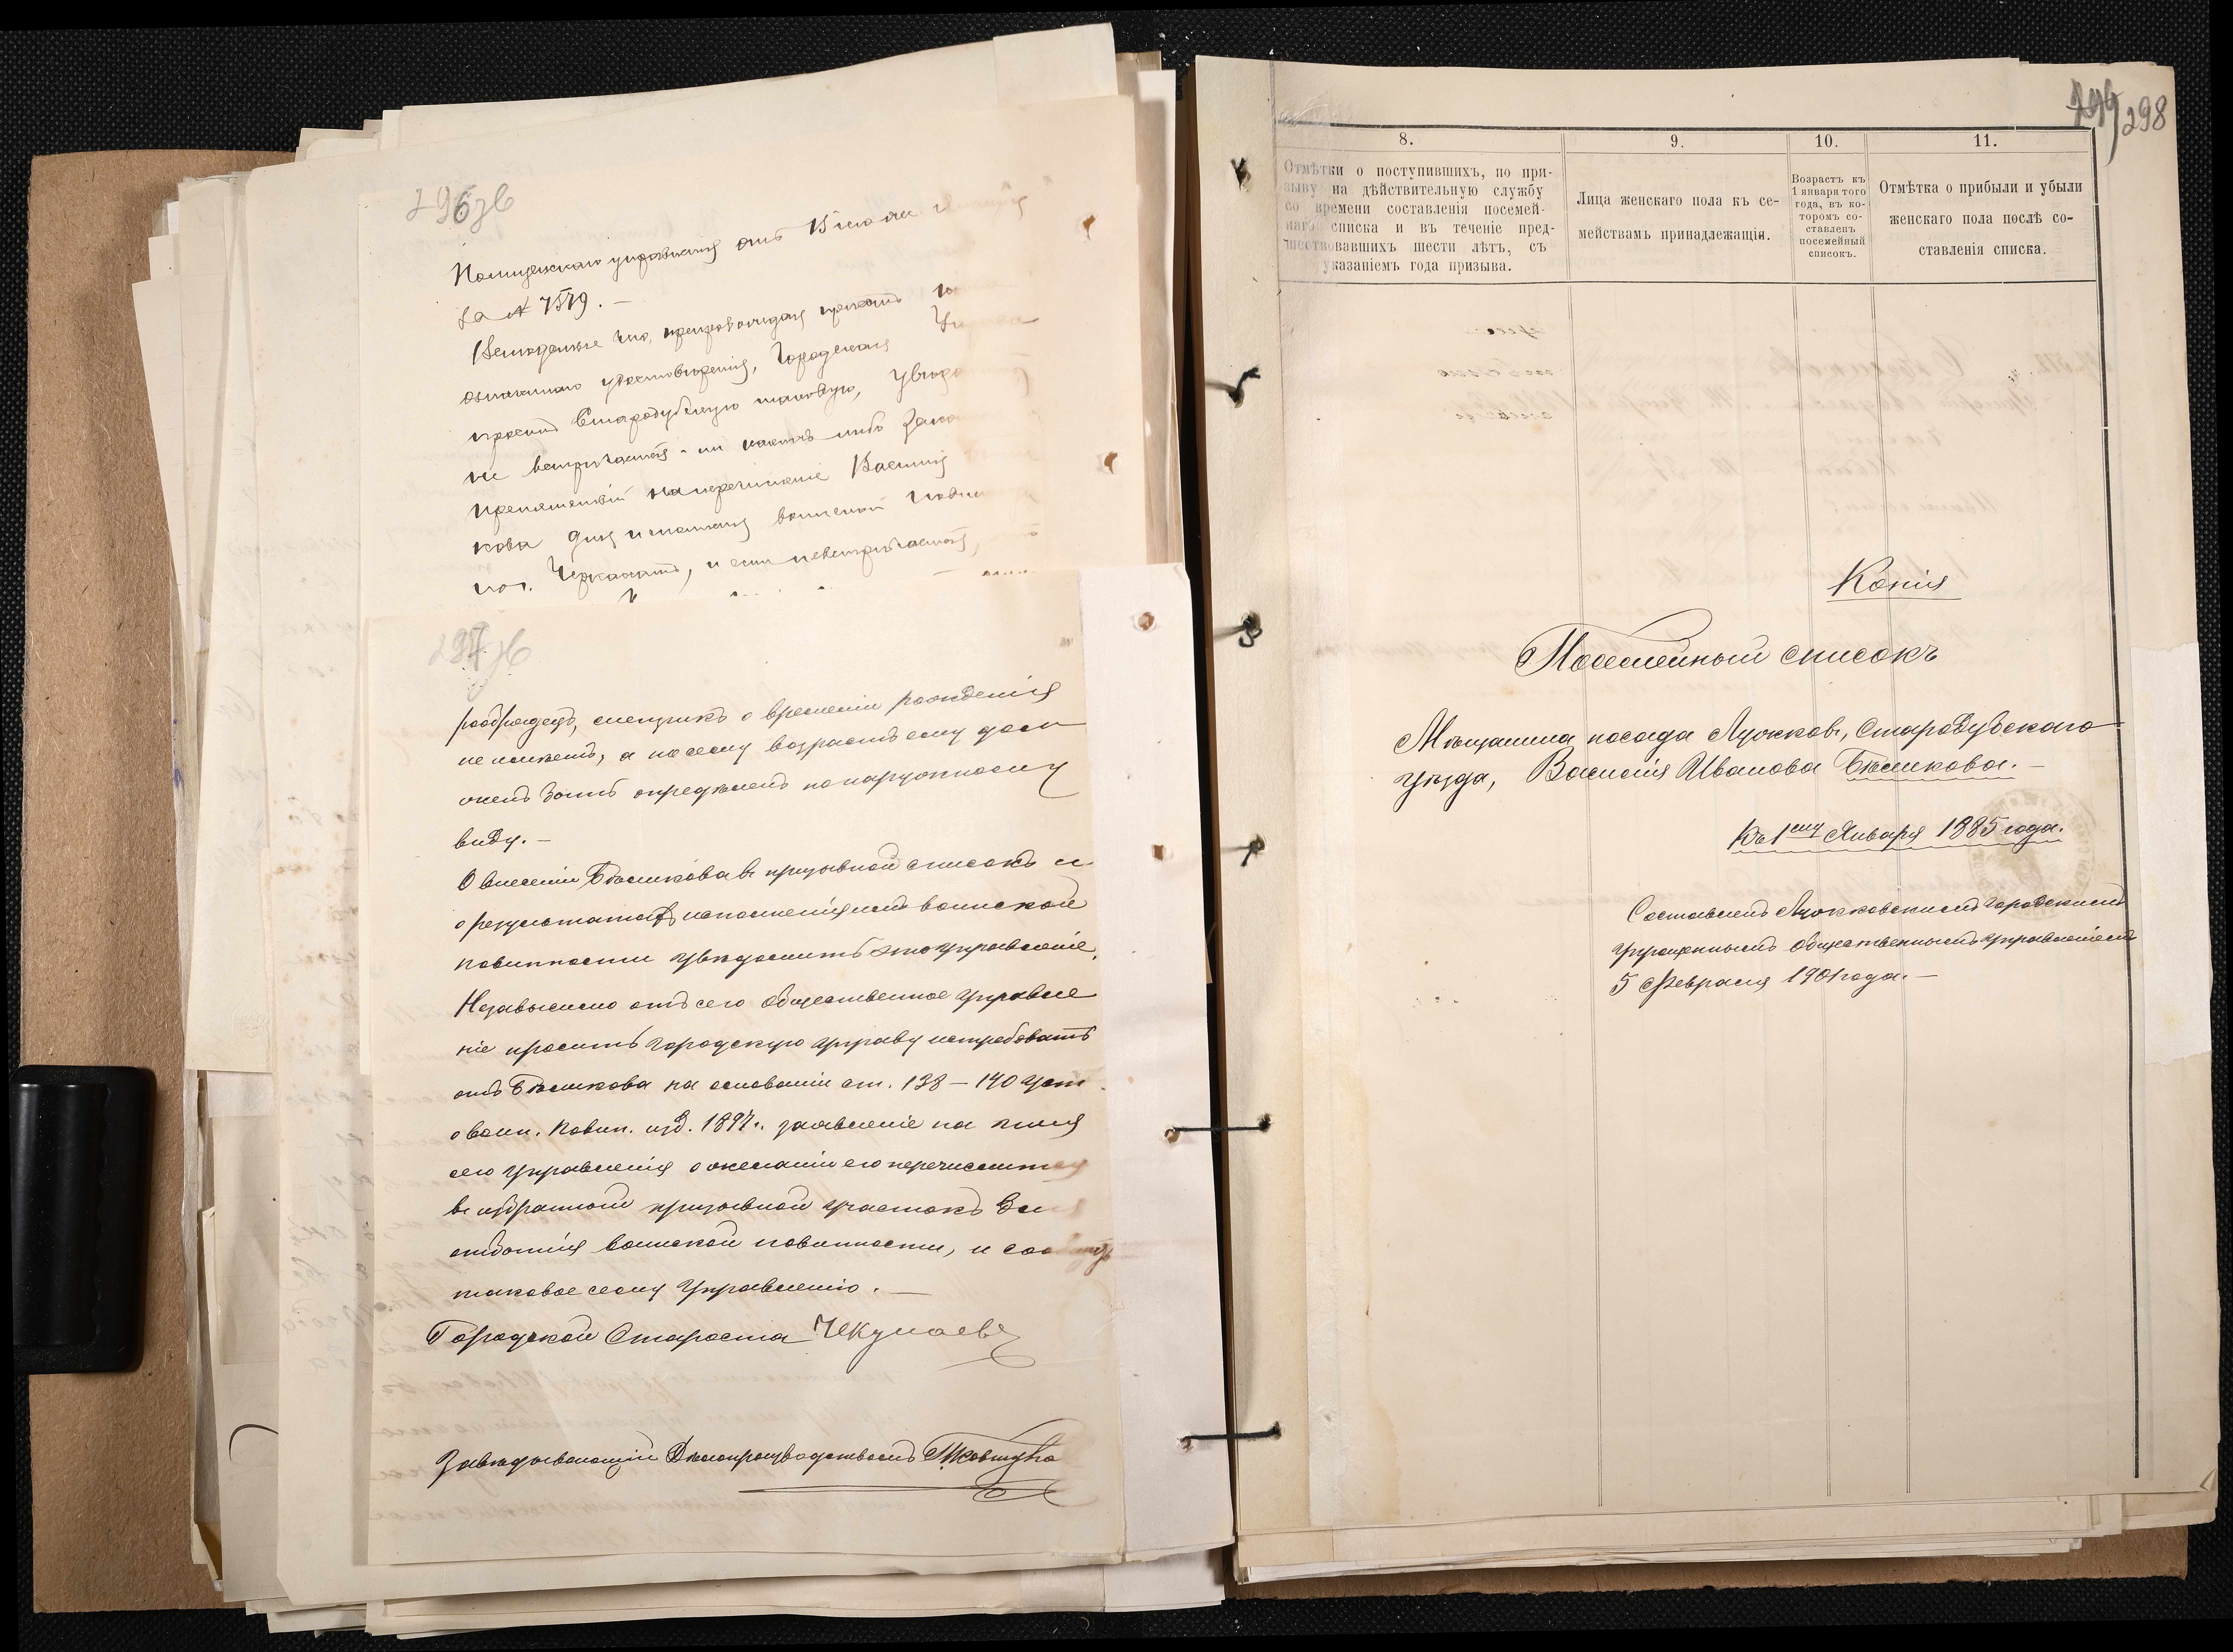 296 зв
Полицейскаго управленія отъ 15 іюля
за № 7579. —
Вслѣдствіе чего, препровождая протоколъ
удостовѣренія, Городская Управа
проситъ Стародубскую таковую, увѣдо
не встрѣчается ли какихъ либо зако
препятствій на перечисленіе Василія
кова для отбытія воинской повин
по г. Черкассамъ, и если невстрѣчается,
297 зв
не можетъ, а посему возрастъ ему дол
женъ быть опредѣленъ по наружному
виду. —
О внесеніи Бѣликова въ призывной списокъ и
о результатахъ исполненія имъ воинской
повинности увѣдомить это Управленіе.
Независимо отъ сего Общественное Управле
ніе проситъ Городскую Управу истребовать
отъ Бѣликова на основаніи ст. 138 — 140 Уст.
о воин. Повин. изд. 1897 г. заявленіе на имя
сего Управленія о желаніи его перечислится
въ избранной призывной участокъ для
отбытія воинской повинности, и сообщить
таковое сему Управленію. —
Городской Староста
Завѣдывающій Дѣлопроизводствомъ
298
8. 9. 10. 11.
Отмѣтки о поступившихъ, по при-
зыву на дѣйствительную службу
со времени составленія посемей-
наго списка и въ теченіе пред-
шествовавшихъ шести лѣтъ, съ
указаніемъ года призыва.
Лица женскаго пола къ се-
мействамъ принадлежащія.
Возрастъ къ
1 января того
года, въ ко-
торомъ со-
ставленъ
посемейный
списокъ.
Отмѣтка о прибыли и убыли
женскаго пола послѣ со-
ставленія списка.
Копія
Посемейный списокъ
Мѣщанина посада Лужковъ, Стародубскаго
уѣзда, Василія Иванова Бѣликова. —
Къ 1ему Января 1885 года.
Составленъ Лужковскимъ Городскимъ
Упрощеннымъ Общественнымъ Управленіемъ
5 Февраля 1901 года. —